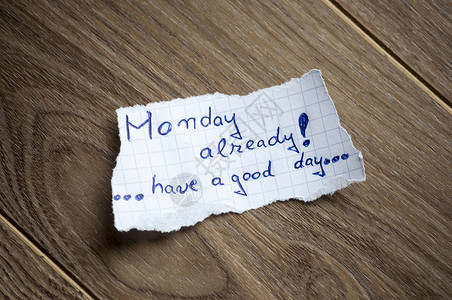 Monday
already!
...have a good day...